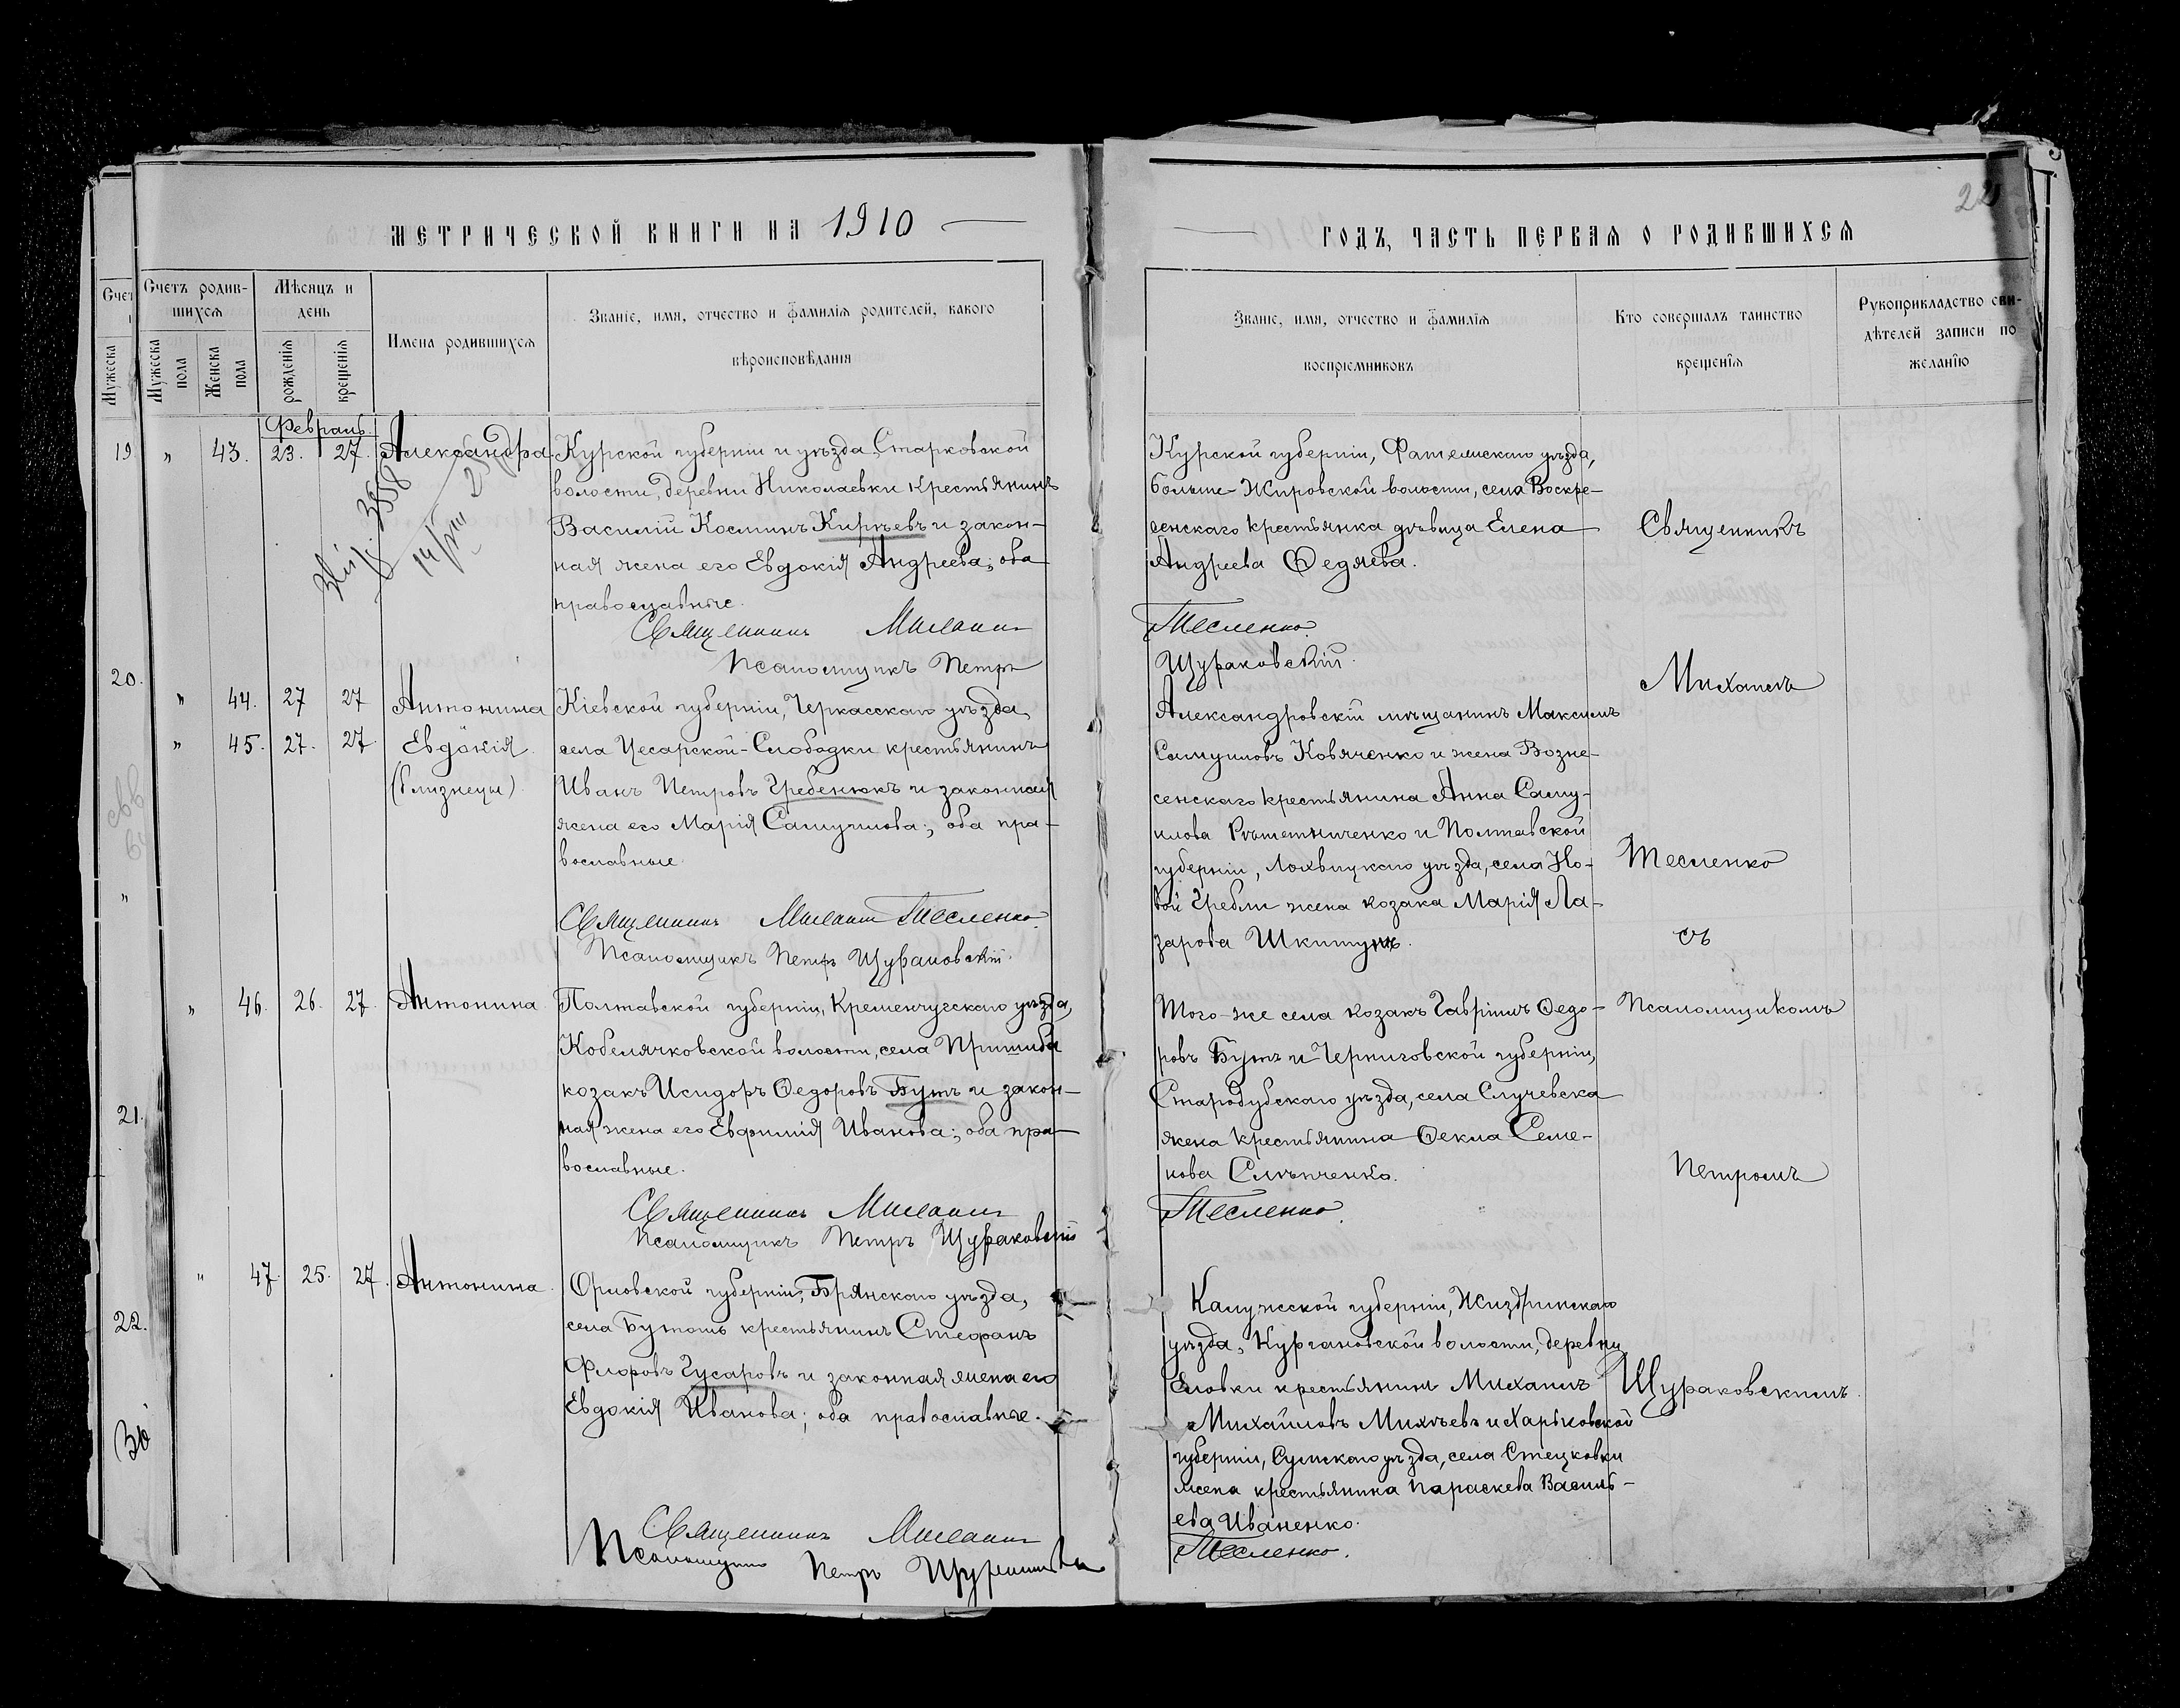 22
МЕТРИЧЕСКОЙ КНИГИ НА 1910
ГОДЪ, ЧАСТЬ ПЕРВАЯ О РОДИВШИХСЯ
Счет
Мужеска
Счетъ родив-
шихся
Мужеска
пола
Женска
пола
Мѣсяцъ и
день
рожденія
крещенія
Имена родившихся
Званіе, имя, отчество и фамилія родителей, какого
вѣроисповѣданія
Званіе, имя, отчество и фамилія
воспріемниковъ
Кто совершалъ таинство
крещенія
Рукоприкладство сви-
дѣтелей записи по
желанію
19
20.
21.
22.
Февраль.
" 43. 23. 27. Александра
3558
Курской губерніи и уѣзда, Старковской
волости, деревни Николаевки крестьянинъ
Василій Косминъ Кирѣевъ и закон-
ная жена его Евдокія Андреева; оба
православные.
Священникъ Михаилъ
Псаломщикъ Петръ
Курской губерніи, Фатежскаго уѣзда,
больше-Жировской волости, села Воскре-
сенскаго крестьянка дѣвица Елена
Андреева Ѳедяева.
Тесленко.
Щураковскій.
" 44. 27 27 Антонина
" 45. 27. 27 Евдокія
(близнецы)
Кіевской губерніи, Черкасскаго уѣзда,
села Цесарской-Слободки крестьянинъ
Иванъ Петровъ Гребенюкъ и законная
жена его Марія Самуилова; оба пра-
вославные
Священникъ Михаилъ Тесленко.
Псаломщикъ Петръ Щураковскій.
Александровскій мѣщанинъ Максимъ
Самуиловъ Ковяченко и жена Возне-
сенскаго крестьянина Анна Саму-
илова Рѣшетниченко и Полтавской
губерніи, Лохвицкаго уѣзда, села Но-
вой Гребли жена козака Марія Ла-
зарова
" 46. 26. 27. Антонина
Полтавской губерніи, Кременчугскаго уѣзда,
Кобелячковской волости, села Пришиба
козакъ Исидоръ Ѳедоровъ Бутъ и закон-
ная жена его Евфимія Иванова; оба пра-
вославные.
Священникъ Михаилъ
Псаломщикъ Петръ Щураковскій
Того-же села козакъ Гавріилъ Ѳедо-
ровъ Бутъ и Черниговской губерніи,
Стародубскаго уѣзда, села Случевска
жена крестьянина Ѳекла Семе-
нова Слѣпченко.
Тесленко.
" 47. 25. 27. Антонина
Орловской губерніи, Брянскаго уѣзда,
села Бутошь крестьянинъ Стефанъ
Флоровъ Гусаровъ и законная жена его
Евдокія Иванова; оба православные.
Священникъ Михаилъ
Псаломщикъ Петръ
Калужской губерніи, Жиздринскаго
уѣзда, Кургановской волости, деревни
Еловки крестьянинъ Михаилъ
Михайловъ Михѣевъ и Харьковской
губерніи, Сумскаго уѣзда, села Стецковки
жена крестьянина Параскева Василь-
ева Иваненко.
Тесленко.
Священникъ
Михаилъ
Тесленко
съ
Псаломщикомъ
Петромъ
Щураковскимъ.